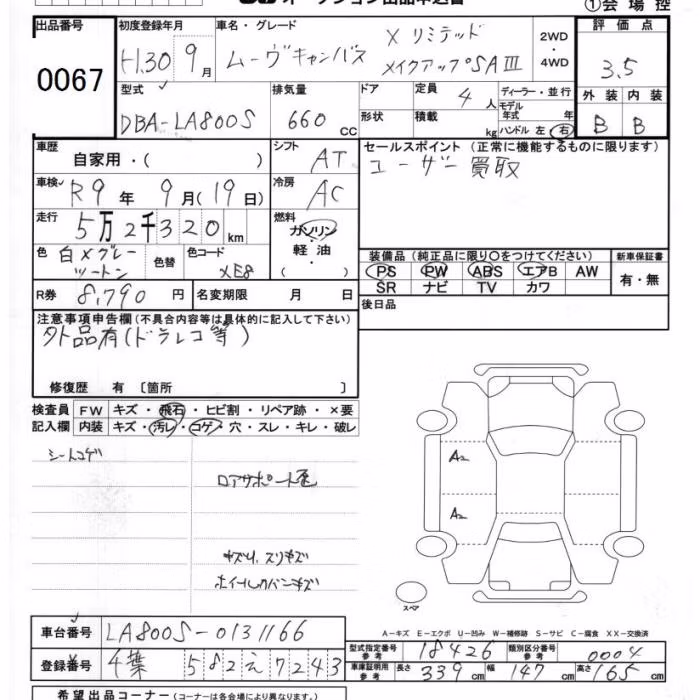 オークション出品申込書
①会場控
出品番号 0067
初度登録年月 H.30 9月
車名・グレード ムーヴキャンバス X リミテッド メイクアップSAⅢ
2WD・4WD
評価点 3.5
外装 B 内装 B
型式 DBA-LA800S
排気量 660 cc
ドア 形状
定員 4人
積載 kg
ディーラー・並行
モデル年式 年
ハンドル 左 右
車歴 自家用・( )
シフト AT
セールスポイント (正常に機能するものに限ります)
ユーザー買取
車検 R9年 9月(19日)
冷房 AC
走行 5万2千320km
燃料 ガソリン・軽油・( )
色 白×グレーツートン
色替
色コード XE8
装備品 (純正品に限り○をつけてください)
PS PW ABS エアB AW
SR ナビ TV カワ
新車保証書 有・無
R券 8,790円
名変期限 月 日
後日品
注意事項申告欄(不具合内容等は具体的に記入して下さい)
外品有(ドラレコ等)
修復歴 有 〔箇所 〕
検査員 FW キズ・飛石・ヒビ割・リペア跡・×要
記入欄 内装 キズ・汚レ・コゲ・穴・スレ・キレ・破レ
シートコゲ
ロアサポート歪
キズU、スリキズ
ホイールカバーキズ
A2
A2
スペア
A-キズ E-エクボ U-凹み W-補修跡 S-サビ C-腐食 XX-交換済
車台番号 LA800S-0131166
登録番号 千葉 582 え 7243
型式指定番号 参考 18426
類別区分番号 参考 0004
車庫証明用 参考 長さ 339cm 幅 147cm 高さ 165cm
希望出品コーナー (コーナーは各会場により異なります。)